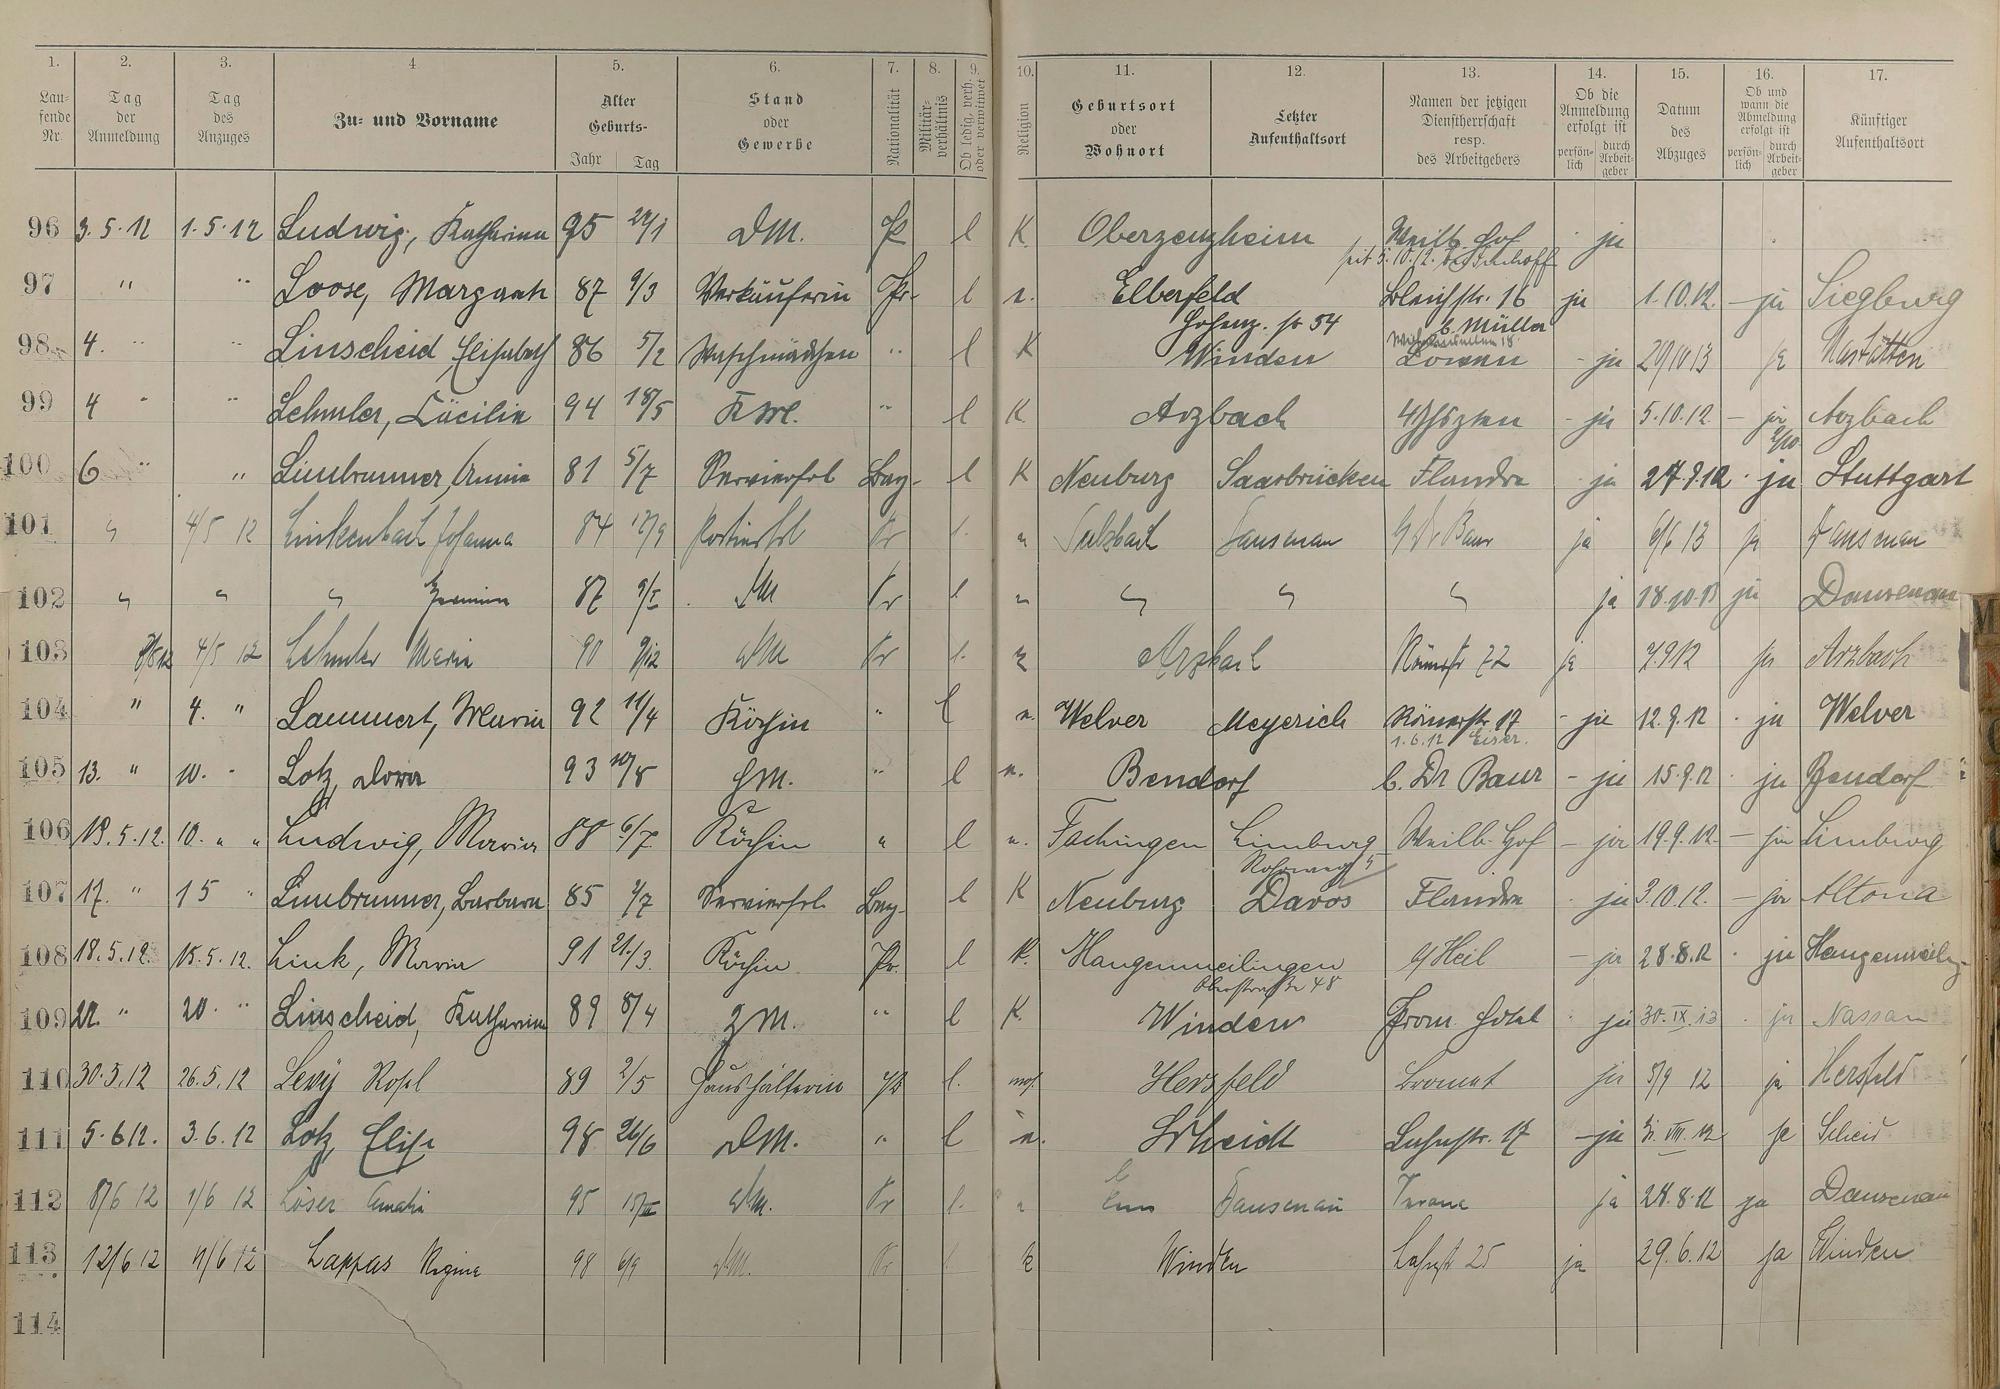 1. 2. 3. 4 5. 6. 7. 8. 9. 10. 11. 12. 13. 14. 15. 16. 17.
Lau-fende Nr. Tag der Anmeldung Tag des Anzuges Zu- und Vorname Alter Geburts- Jahr Tag Stand oder Gewerbe Nationalität Militär-verhältnis Ob ledig, verh. oder verwitwet Religion Geburtsort oder Wohnort Letzter Aufenthaltsort Namen der jetzigen Dienstherrschaft resp. des Arbeitgebers Ob die Anmeldung erfolgt ist persön-lich durch Arbeit-geber Datum des Abzuges Ob und wann die Abmeldung erfolgt ist persön-lich durch Arbeit-geber Künftiger Aufenthaltsort
96 3.5.12 1.5.12 Ludwig, Katharina 95 DM. l K. Oberzeuzheim Weilb. Hof ja
97 " " Loose, Margareth 87 9/3 Verkäuferin Pr. l Elberfeld Bleichstr. 16 ja 1.10.12. – ja Siegburg
Hohenz. str 54 b. Müller
98 4. " " Linscheid, Elisabeth 86 5/2 Waschmädchen " l K Winden Löwen - ja 29/10 13 ja Nastätten
99 4 " " Lehmler, Cäcilie 94 18/5 l K. Arzbach - ja 5.10.12. – ja Arzbach
100 6 " " Limbrunner, Annie 81 5/7 Servierfrl Bay- l K Neuburg Saarbrücken Flandra ja 27.9.12 ja Stuttgart
101 " 4/5 12 Linkenbach Johanna 84 Pr l. Sulzbach Dausenau Dr Baur ja 6/6 13 ja Dausenau
102 " " " 87 DM Pr l " " " " ja 18.10.13 ja Dausenau
103 4/5 12 Lehmler Maria 90 9/12 DM Pr l. Arzbach Römerstr 72 ja 7.9 12 ja Arzbach
104 " 4. " Lammert, Maria 92 11/4 Köchin " l Welver Meyerich Römerstr. 17 - ja 12.9.12 ja Welver
1.6.12 Eiser.
105 13. " 10. " Lotz, Dora 93 10/8 HM. " l Bendorf b. Dr Baur – ja 15.9.12 ja Bendorf
106 13.5.12. 10. " " Ludwig, Maria 88 6/7 Köchin " l Fachingen Limburg Weilb. Hof – ja 19.9.12. – ja Limburg
107 17. " 15 " Limbrunner, Barbara 85 Servierfrl. Bay- l K Neuburg Davos Flandra ja 3.10.12. – ja Altona
108 18.5.12. 15.5.12. Link, Maria 91 21./3. Köchin Pr. l K. Hangenmeilingen Heil – ja 28.8.12 ja
48
109 22. " 20. " Linscheid, Katharina 89 8/4 ZM. " l K. Winden Prom. Hotel ja 30.IX.13 ja Nassau
110 30.5.12 26.5.12 Levy Rosel 89 2/5 Haushälterin l. mos. Hersfeld Bromet ja 5/9 12 ja Hersfeld
111 5.6 12. 3.6.12 Lotz, Elise 98 26/6 DM. " l Scheidt Lahnstr. 17 – ja 31. VIII. 12 ja Scheid
112 8/6 12 1/6 12 Löser Amalie 95 15/III DM. Pr l. Ems Dausenau ja 28.8.12 ja Dausenau
113 12/6 12 11/6 12 Lappas Regina 98 6/9 DM. Pr l K Winden Lahnstr 25 ja 29.6.12 ja Winden
114